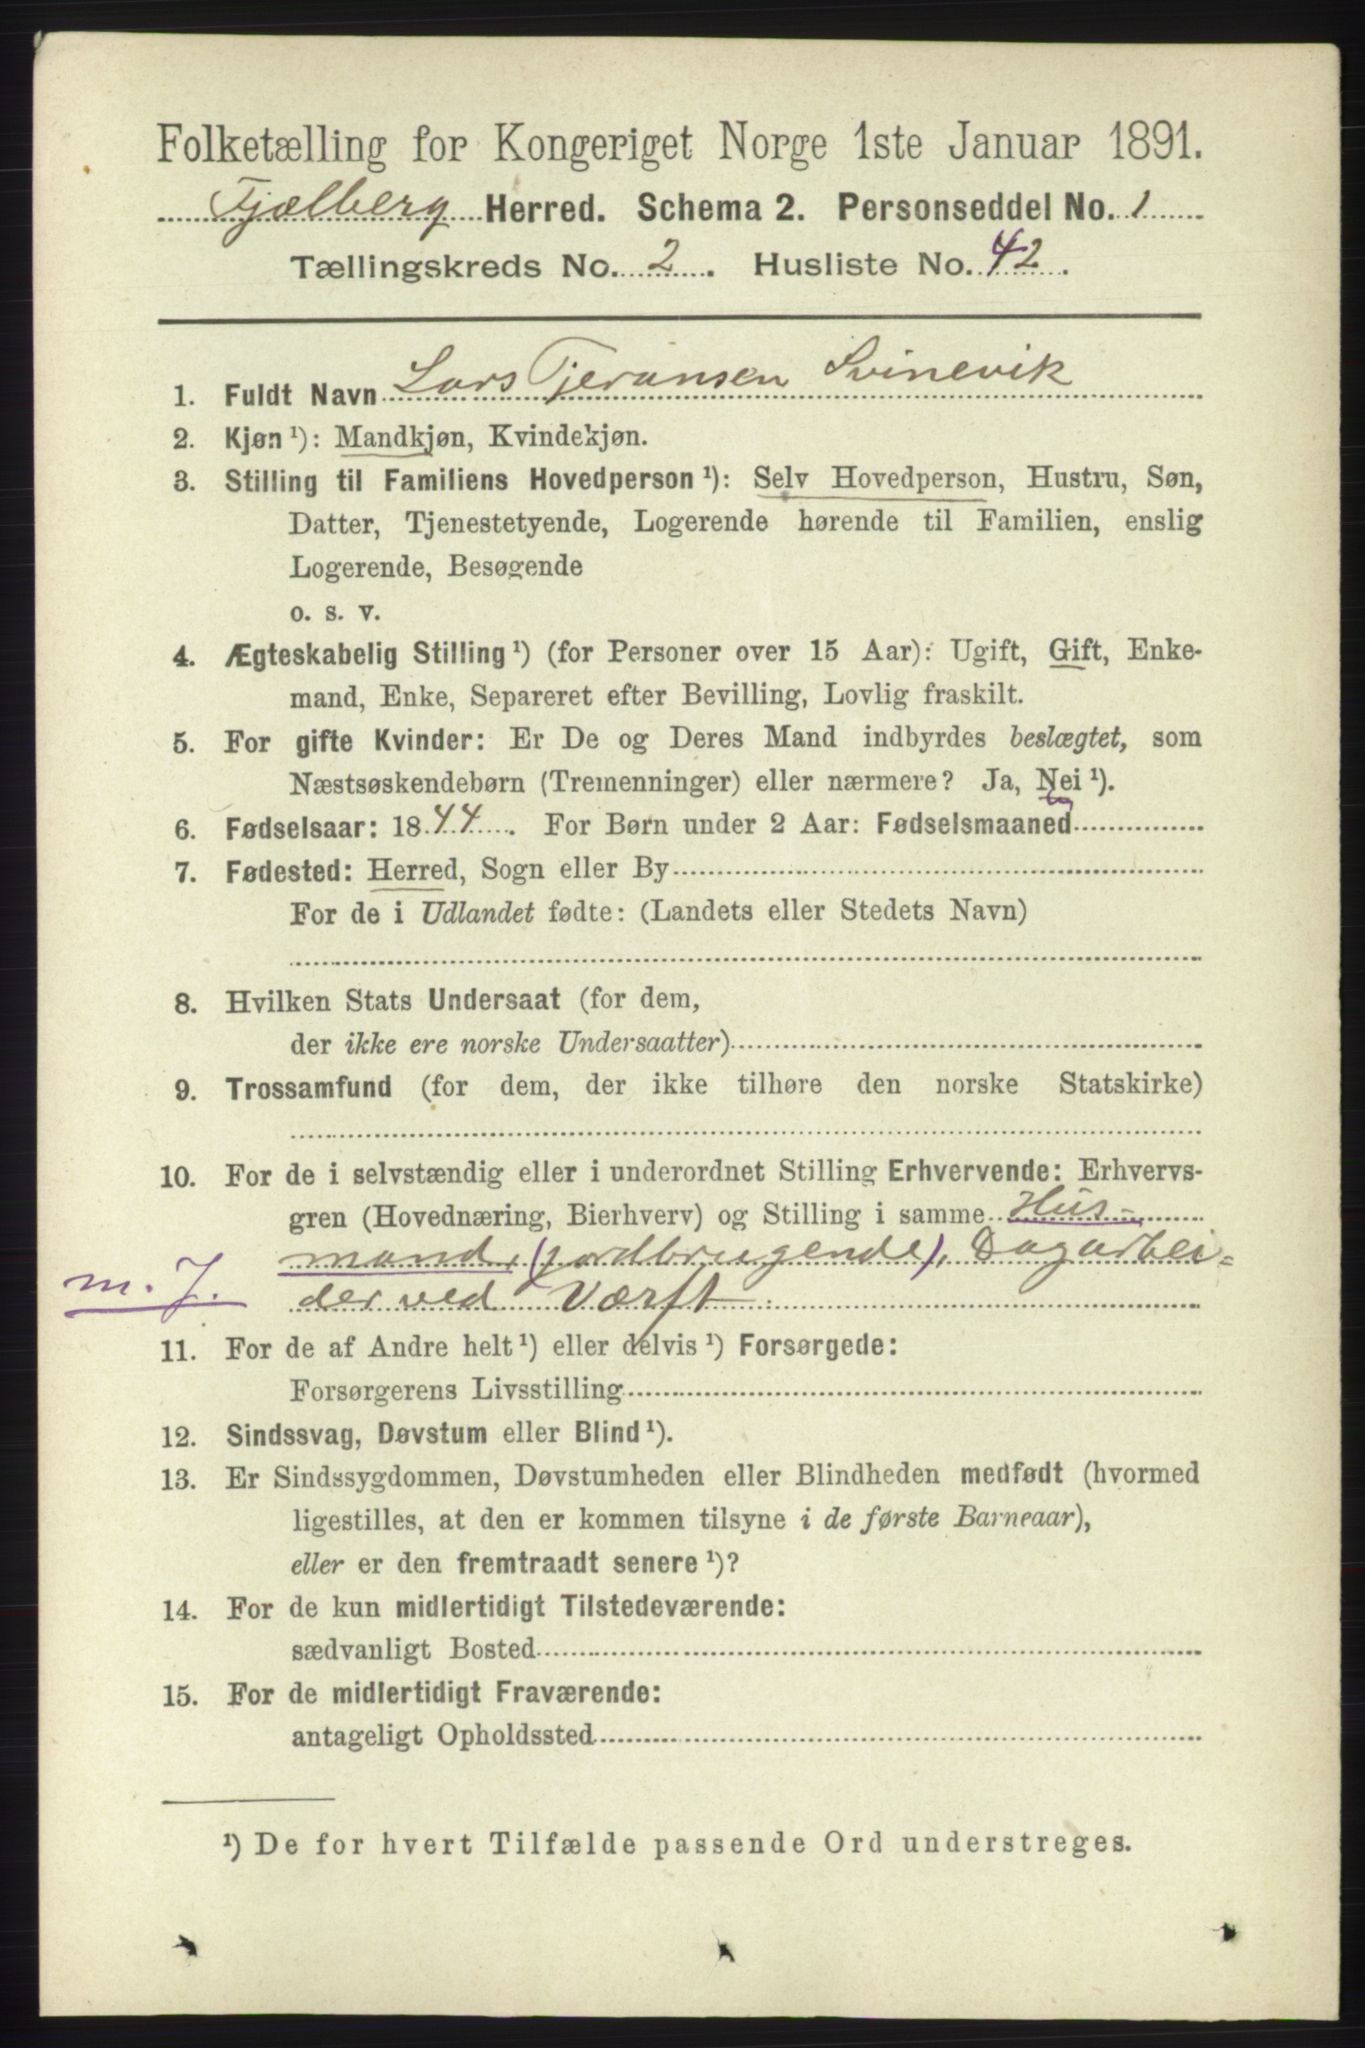 Folketælling for Kongeriget Norge 1ste Januar 1891.
Fjælberg Herred. Schema 2. Personseddel No. 1
Tællingskreds No. 2. Husliste No. 42.
1. Fuldt Navn Lars Tjeransen Svinevik
2. Kjøn ¹): Mandkjøn, Kvindekjøn.
3. Stilling til Familiens Hovedperson ¹): Selv Hovedperson, Hustru, Søn,
Datter, Tjenestetyende, Logerende hørende til Familien, enslig
Logerende, Besøgende
o. s. v.
4. Ægteskabelig Stilling ¹) (for Personer over 15 Aar): Ugift, Gift, Enke-
mand, Enke, Separeret efter Bevilling, Lovlig fraskilt.
5. For gifte Kvinder: Er De og Deres Mand indbyrdes beslægtet, som
Næstsøskendebørn (Tremenninger) eller nærmere? Ja, Nei ¹).
6. Fødselsaar: 1844. For Børn under 2 Aar: Fødselsmaaned
7. Fødested: Herred, Sogn eller By
For de i Udlandet fødte: (Landets eller Stedets Navn)
8. Hvilken Stats Undersaat (for dem,
der ikke ere norske Undersaatter)
9. Trossamfund (for dem, der ikke tilhøre den norske Statskirke)
10. For de i selvstændig eller i underordnet Stilling Erhvervende: Erhvervs-
gren (Hovednæring, Bierhverv) og Stilling i samme Hus-
mand, (jordbrugende), Dagarbei-
m. J. der ved Værft
11. For de af Andre helt ¹) eller delvis ¹) Forsørgede:
Forsørgerens Livsstilling
12. Sindssvag, Døvstum eller Blind ¹).
13. Er Sindssygdommen, Døvstumheden eller Blindheden medfødt (hvormed
ligestilles, at den er kommen tilsyne i de første Barneaar),
eller er den fremtraadt senere ¹)?
14. For de kun midlertidigt Tilstedeværende:
sædvanligt Bosted
15. For de midlertidigt Fraværende:
antageligt Opholdssted
¹) De for hvert Tilfælde passende Ord understreges.